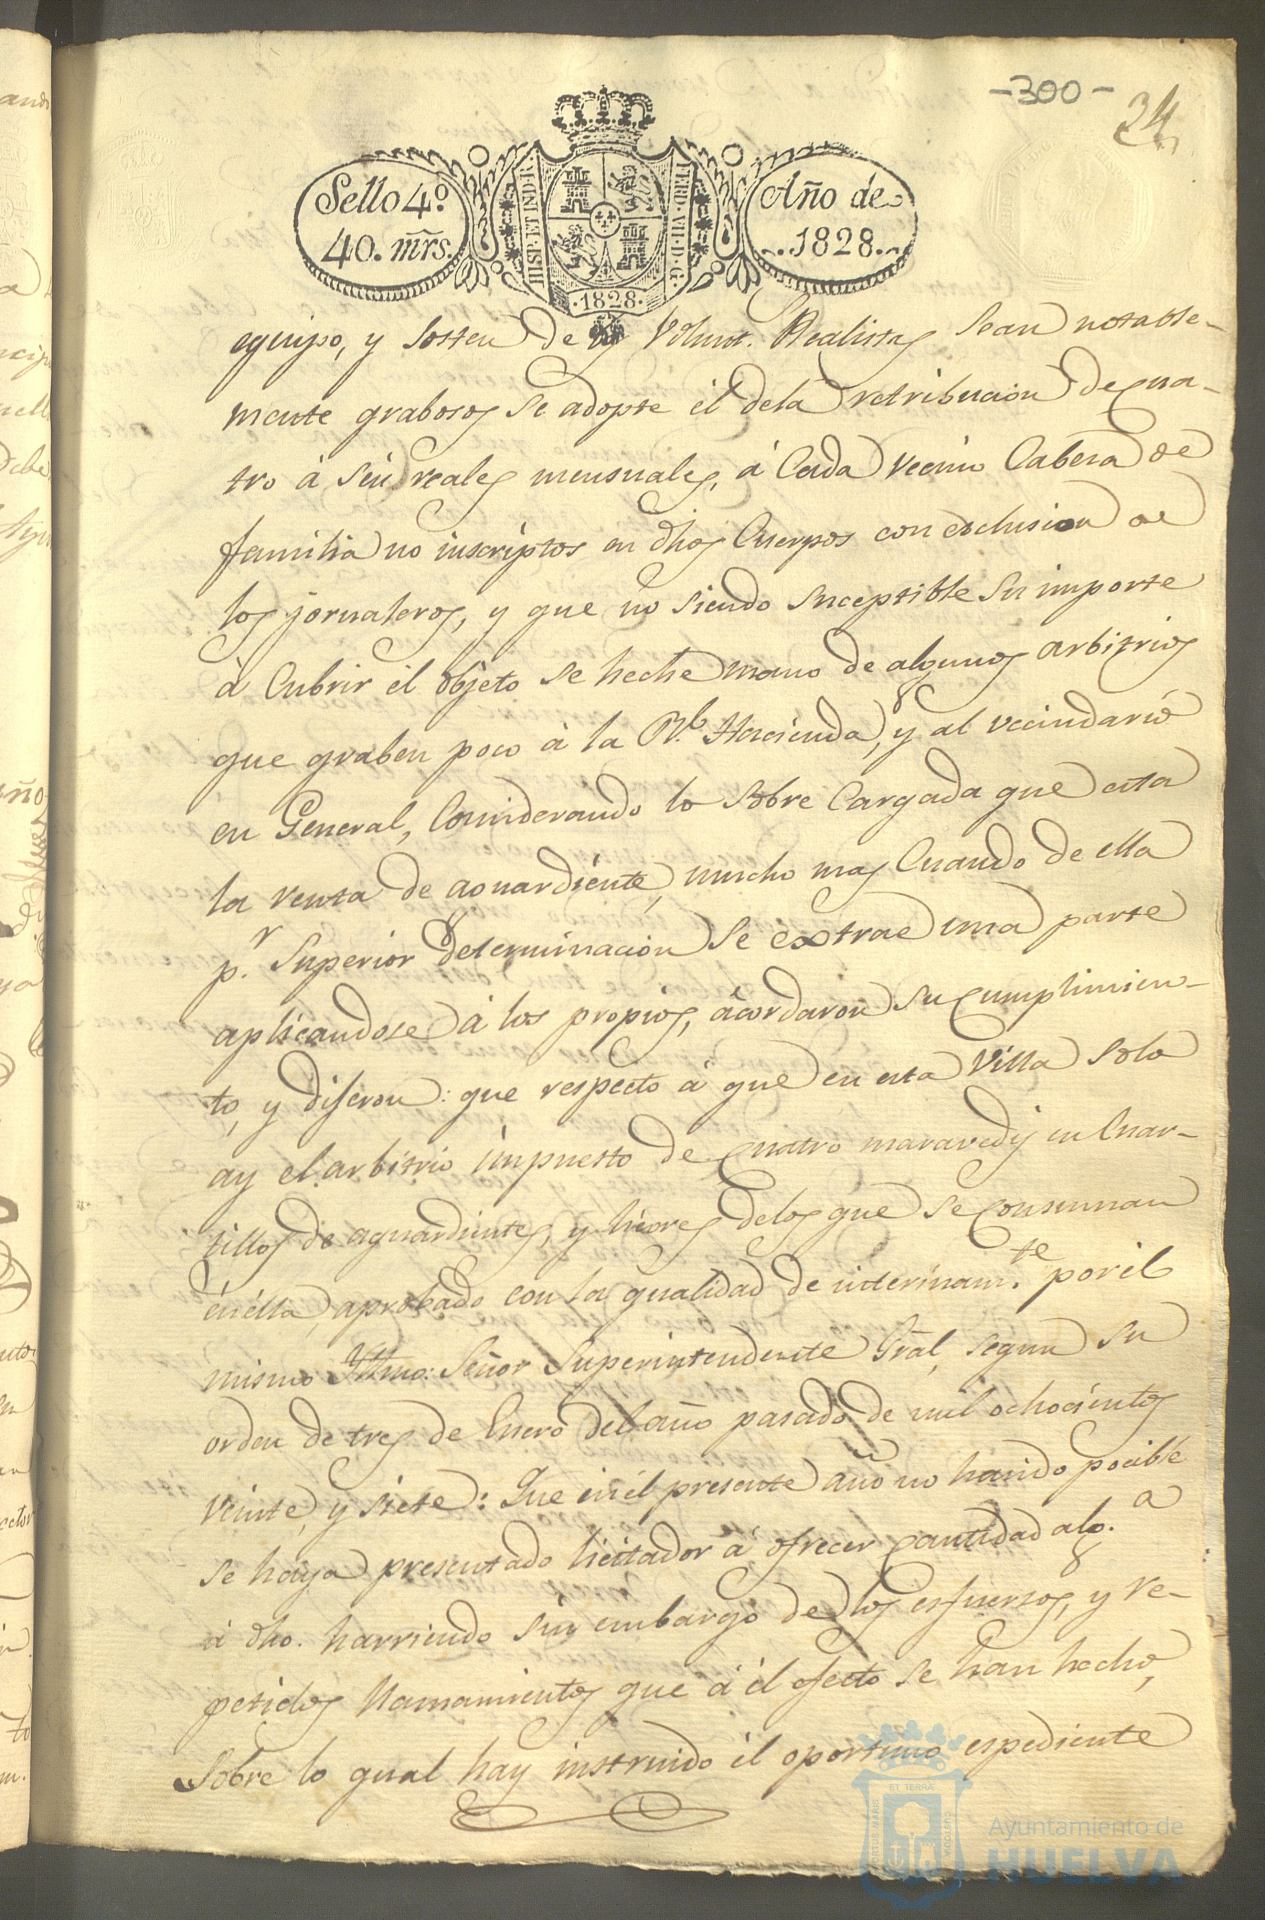 -300-
34
Sello 4.º
40. mrs.
HISP. ET IND. R.
FERD. VII. D. G.
·1828·
Año de
1828.
equipo, y sosten de los Volunt. Realistas sean notable-
mente grabosos se adopte él dela retribucion de qua-
tro á seis reales mensuales, á Cada vecino Cabesa de
familia no inscriptos en dhos Cuerpos con esclusion de
los jornaleros, y que no siendo suceptible su importe
á Cubrir él objeto se heche mano de algunos arbitrios
que graben poco á la Rl. Hacienda, y al vecindario
en General, Considerando lo sobre Cargada que esta
la venta de aguardiente, mucho mas Cuando de ella
p.r Superior determinacion se extrae una parte
aplicandose á los propios, ácordaron su Cumplimien-
to, y dijeron: que respecto á que en esta Villa solo
ay el arbitrio ímpuesto de quatro maravedis en Cuar-
tillos de aguardientes, y licores delos que se Consuman
én élla, aprobado con la qualidad de interinam.te por él
mismo Yltmo: Señor Superintendente Gral, segun su
orden de tres de Enero del año pasado de mil ochocientos
veinte, y siete: Que en él presente año no ha sido pocible
se haya presentado licitador á ofrecer Cantidad alg.a
á dho. harriendo sin embargo de los esfuersos, y re-
petidos llamamientos que á él efecto se han hecho,
Sobre lo qual hay instruido él oportuno espediente
Ayuntamiento de
HUELVA